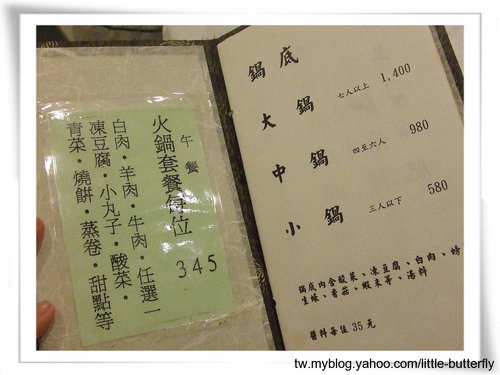 午餐
火鍋套餐每位 345
白肉·羊肉·牛肉·任選一
凍豆腐·小丸子·酸菜·
青菜·燒餅·蒸卷·甜點等
鍋底
大鍋 七人以上 1,400
中鍋 四至六人 980
小鍋 三人以下 580
鍋底內含酸菜、凍豆腐、白肉、螃
生蠔、香菇、蝦米等、湯料
醬料每位35元
tw.myblog.yahoo.com/little-butterfly